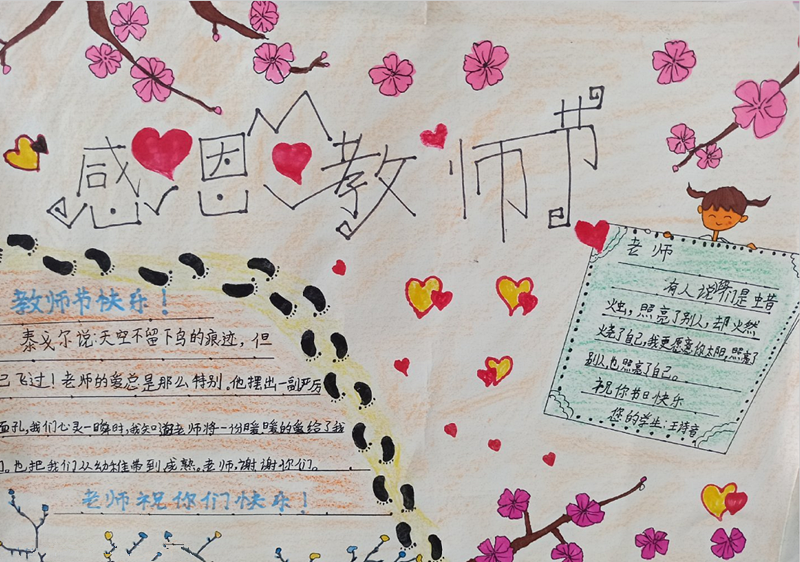 感恩教师节
教师节快乐！
泰戈尔说：天空不留下鸟的痕迹，但
己飞过！老师的爱总是那么特别。他摆出一副严厉
面孔，我们心灵一瞬时，我知道老师将一份暖暖的爱给了我
们。也把我们从幼稚带到成熟。老师，谢谢你们。
老师祝你们快乐！
老师
有人说你们是蜡
烛，照亮了别人，却火然
烧了自己，我更愿意你太阳，照亮了
别人也照亮了自己。
祝你节日快乐
您的学生：王诗音